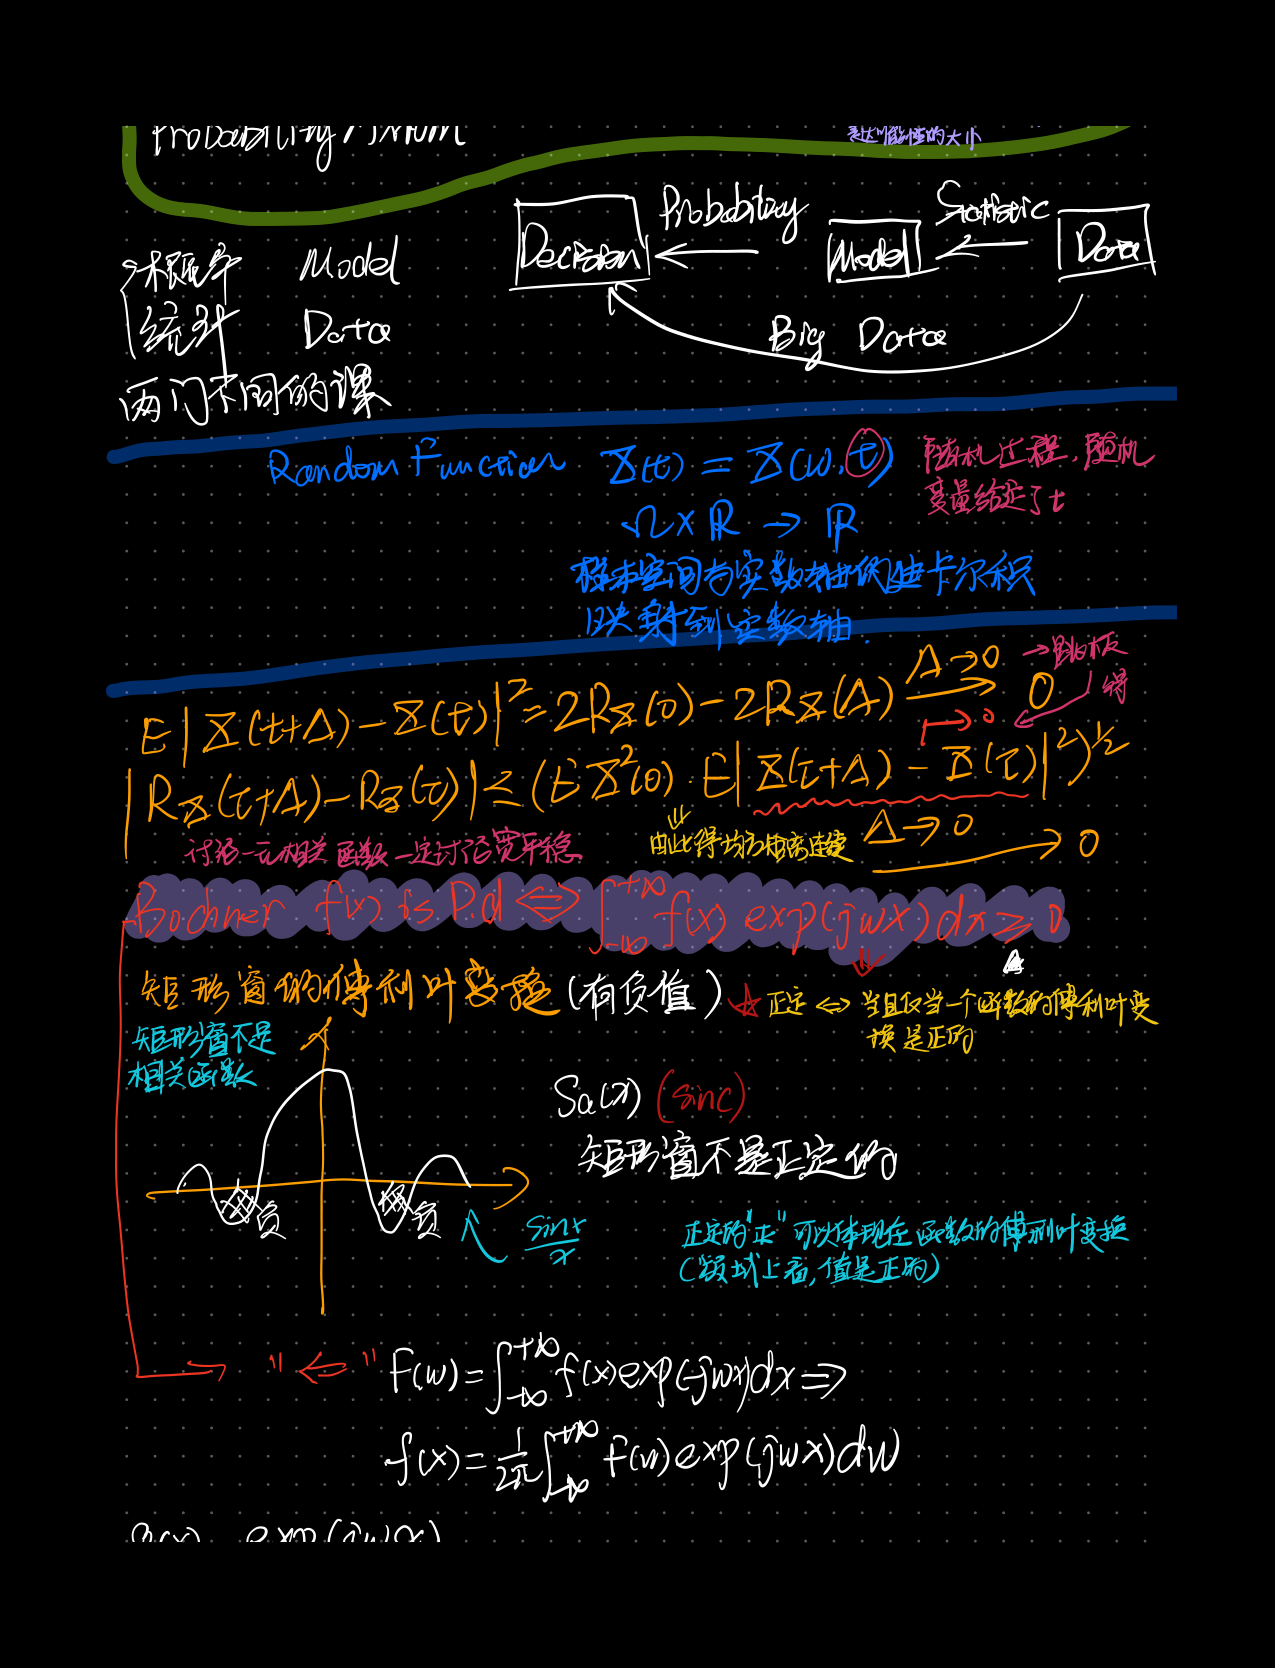 Probability Axiom
表达可能性的大小
Decision
Probability
Model
Statistic
Data
Big Data
概率 Model
统计 Data
两门不同的课
Random Function X(t) = X(ω, t)
随机过程，随机
变量给定了t
Ω × ℝ → ℝ
样本空间与实数轴的笛卡尔积
映射到实数轴.
E|X(t+Δ) − X(t)|² = 2R_X(0) − 2R_X(Δ) Δ→0 0
→跳板
得
→0
|R_X(τ+Δ) − R_X(τ)| ≤ (E X²(0) · E|X(τ+Δ) − X(τ)|²)^½
讨论一元相关函数一定讨论宽平稳
⇓
由此得均方距离连续
Δ→0 → 0
Bochner f(x) is P.d ⟺ ∫_{-∞}^{+∞} f(x) exp(jωx) dx ≥ 0
矩形窗的傅利叶变换 (有负值)
☆ 正定 ⟺ 当且仅当一个函数的傅利叶变
换是正的
矩形窗不是
相关函数
Sa(x) (sinc)
矩形窗不是正定的
负
负
sinx/x
正定的"正"可以体现在函数的傅利叶变换
(频域上看,值是正的)
"⇐" F(ω) = ∫_{-∞}^{+∞} f(x) exp(-jωx) dx ⇒
f(x) = 1/2π ∫_{-∞}^{+∞} F(ω) exp(jωx) dω
exp(jωx)